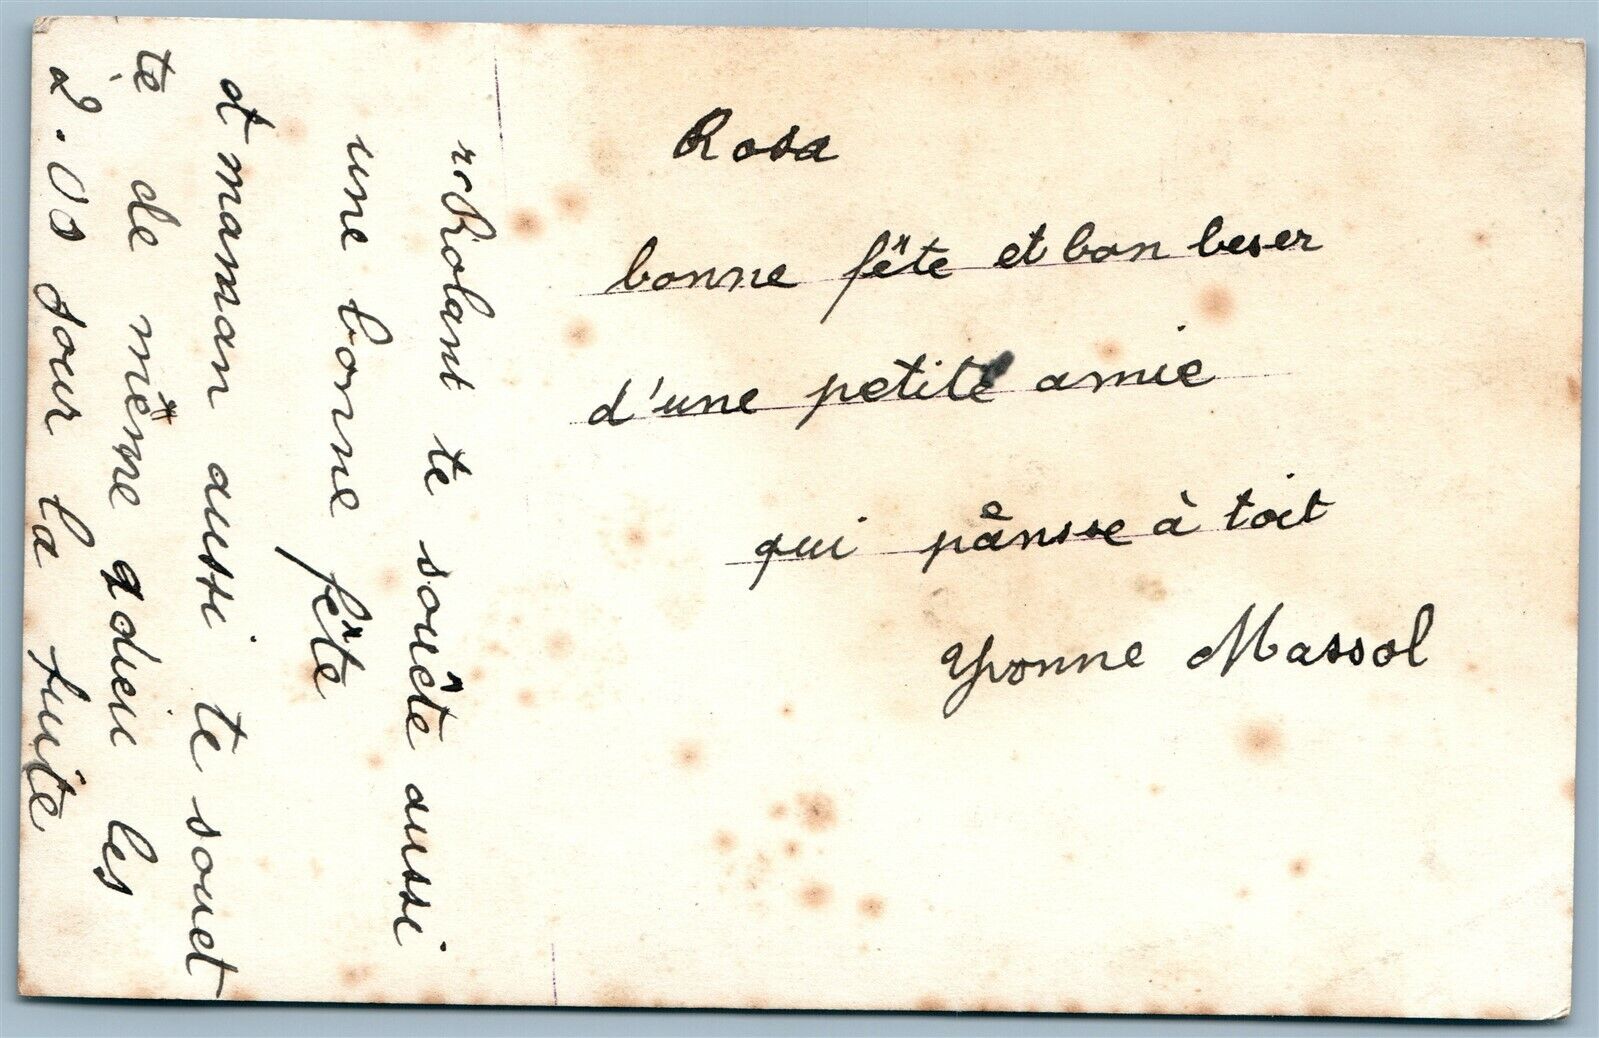 Rosa
bonne fête et bon beser
d'une petite amie
qui pânsse à toit
Yvonne Massol
roRolant te souête aussi
une bonne fête
et maman aussi te souet
te de même adieu les
2. os sour la fuite